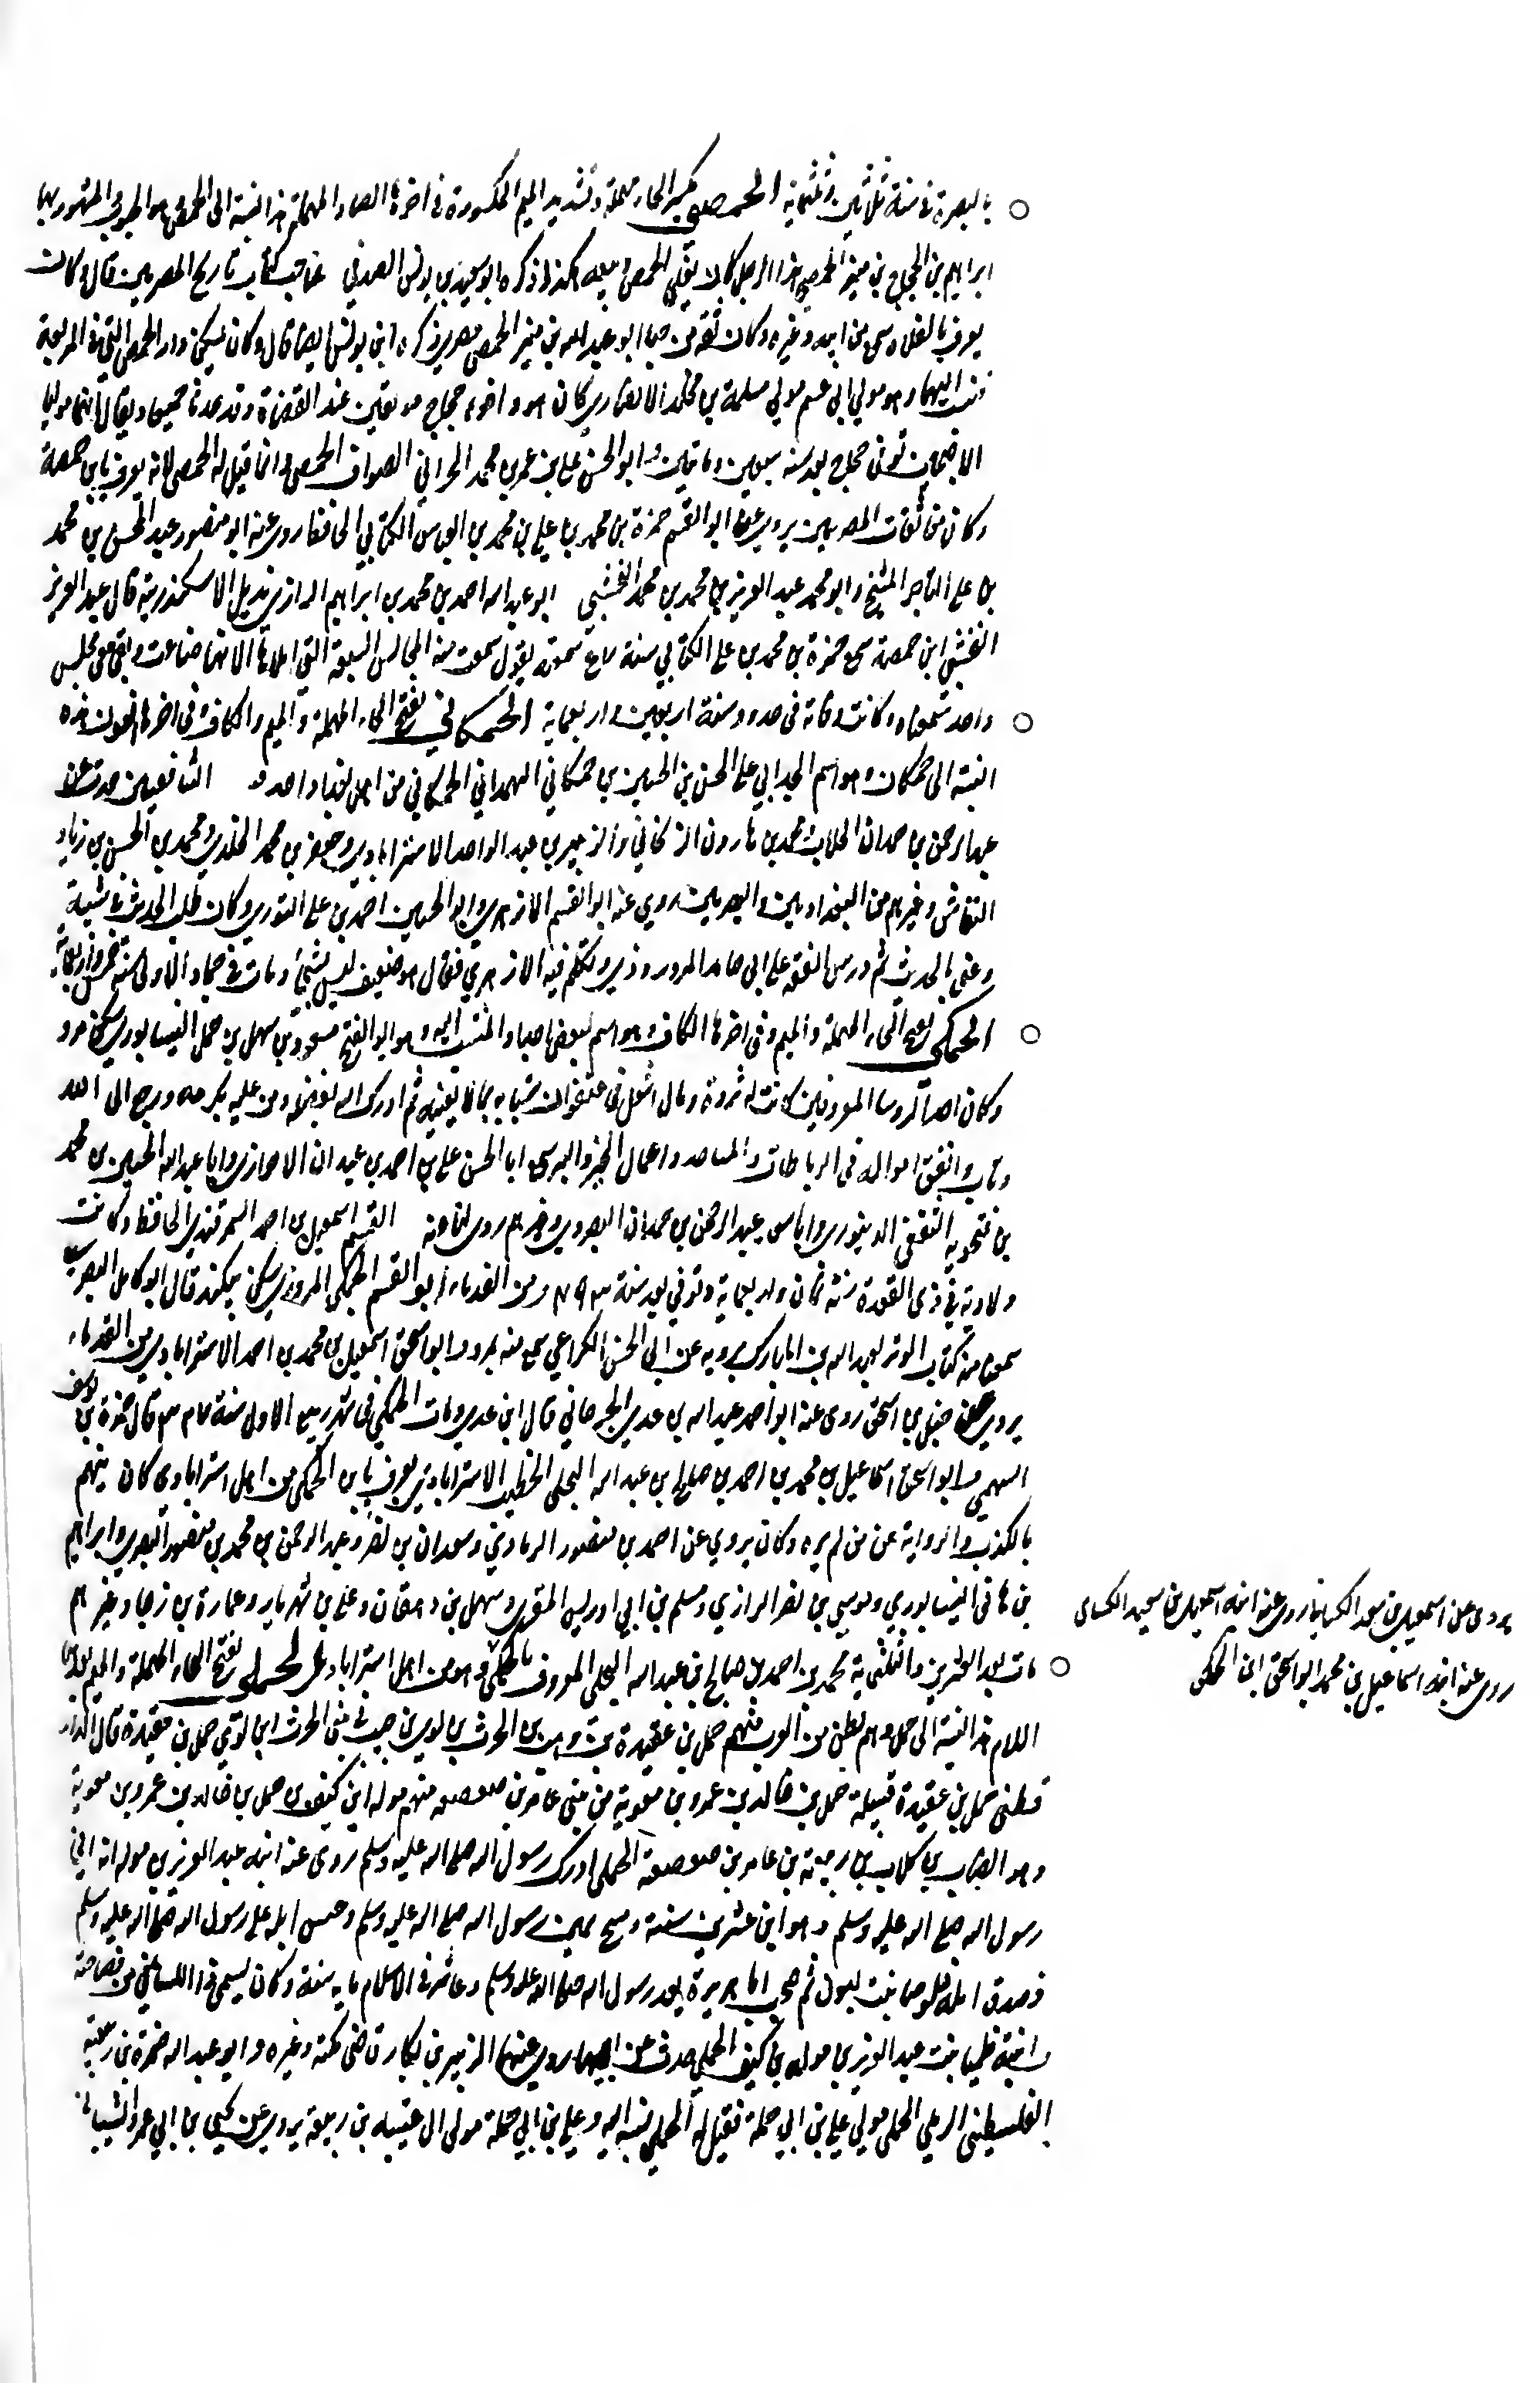 بالبصرة في سنة ثلاثين وثلثمية الحمصي بكسر الحاء مهملة وتشديد الميم المكسورة في اخرها الصاد المهملة هذه النسبة الى الحمص وهو الحبوب المشهور بها
ابراهيم بن الحجاج بن منير الحمصي هذا الرجل كان يقلي الحمص ويبيعه هكذا ذكره ابو سعيد بن يونس الصدفي صاحب كتاب تاريخ المصريين قال وكان
يعرف بالقلاء سمع من ابيه وغيره وكان ثقة من ابو عبد الله بن منير الحمصي مصري ذكره ابن يونس ايضا قال وكان يسكن دار الحمص التي في المربعة
فنسب اليها وهو مولى ابي عسم مولى مسلمة بن مخلد الانصاري كان هو واخوه حجاج موثقين عند القضاة وقد حدثا جميعا ويقال انهما موليا
حجاج بعد سنة سبعين وماتين وابو الحسن علي بن عمر بن محمد الحراني الصواف الحمصي وانما قيل له الحمصي لانه يعرف بابن حمصة
وكان من ثقات المصريين يروي عن ابو القسم حمزة بن محمد بن علي بن محمد بن العباس الكناني الحافظ روى عنه ابو منصور عبد المحسن بن محمد
بن علي التاجر الشيخ وابو محمد عبد العزيز بن محمد بن محمد النخشبي ابو عبد الله احمد بن محمد بن ابراهيم الرازي نزيل الاسكندرية قال عبد العزيز
النخشبي ابن حمصة سمع حمزة بن محمد بن علي الكناني سنة سمعته يقول سمعت منه المجالس السبعة التي املاها الا انها ضاعت وبقي معي مجلس
واحد سمعناه وكانت وفاته في حدود سنة اربعين واربعماية الحمكاني بفتح الحاء المهملة والميم والكاف وفي اخرها النون هذه
النسبة الى حمكان وهو اسم لجد ابي علي الحسن بن الحسين بن حمكان الهمداني الحمكاني من اهل بغداد احد الشافعيين حدث عن
عبد الرحمن بن حمدان الجلاب ومحمد بن هارون الزنجاني والزبير بن عبد الواحد الاستراباذي وجعفر بن محمد الخلدي ومحمد بن الحسن بن زياد
النقاش وغيرهم من البغداديين والبصريين روى عنه ابو القسم الازهري وابو الحسين احمد بن علي التوزي وكان طلب الحديث في شبيبته
وعني بالحديث ثم درس الفقه على ابي حامد المروروذي وتكلم فيه الازهري فقال هو ضعيف ليس بشيء ومات في جمادى الاولى سنة خمس واربعماية
الحمكي بفتح الحاء المهملة والميم وفي اخرها الكاف وهو اسم لبعض اجداد المنتسب اليه وهو ابو الفتح مسعود بن سهل بن حمك النيسابوري سكن مرو
وكان احد الروسا المعروفين كانت له ثروة ومال اشتغل في عنفوان شبابه بما لا يعنيه ثم ادركه الله بفضله ومن عليه بكرمه ورجع الى الله
وتاب وانفق امواله في الرباطات والمساجد واعمال الخير والبر سمع ابا الحسن علي بن احمد بن عبدان الاهوازي وابا عبد الله الحسين بن محمد
بن فنجويه الثقفي الدينوري وابا سعد عبد الرحمن بن حمدان البصروي وغيرهم روى لنا عنه القسم اسمعيل بن احمد السمرقندي الحافظ وكانت
ولادته في ذي القعدة سنة ثمان واربعماية وتوفي بعد سنة ٤٩٣ ومن القدماء ابو القسم الحمكي المروزي سكن بيكند قال ابو كامل البصري
سمعنا منه كتاب الوتر لعبد الله بن المبارك يرويه عن ابي الحسن الكراعي سمع منه بمرو وابو اسحق اسمعيل بن محمد بن احمد الاستراباذي من القدماء
يروي عن حنبل بن اسحق روى عنه ابو احمد عبد الله بن عدي الجرجاني قال ابن عدي ومات الحمكي في شهر ربيع الاول سنة قال حمزة بن يوسف
السهمي وابو اسحق اسماعيل بن محمد بن احمد بن صالح بن عبد الله البجلي الخطيب الاستراباذي يعرف بابن الحمكي من اهل استراباد كان يتهم
بالكذب والرواية عن من لم يره وكان يروي عن احمد بن منصور الرمادي وسعدان بن نصر وعبد الرحمن بن محمد بن منصور البصري وابراهيم
بن هانئ النيسابوري وموسى بن نصر الرازي ومسلم بن ابي ادريس المقري وسهل بن دهقان وعلي بن شهريار وعمارة بن رجاء وغيرهم
مات بعد العشرين والثلثمية محمد بن احمد بن صالح بن عبد الله البجلي المعروف بالحمكي وهو من اهل استراباد الحملي بفتح الحاء المهملة والميم بعدها
اللام هذه النسبة الى حمل وهو بطن من العرب منهم حمل بن عقيدة بن وهب بن الحرث بن لوي بن جب في بني الحرث بن لؤي حمل بن عقيدة قال الدار
قطني حمل بن عقيدة قبيلة حمل بن خالد بن عمرو بن معوية من بني عامر بن صعصعة منهم موله ابن كثيف بن حمل بن خالد بن عمرو بن معوية
وهو الضباب بن كلاب بن ربيعة بن عامر بن صعصعة الحملي ادرك رسول الله صلى الله عليه وسلم روى عنه ابنه عبد العزيز بن موله انه اتى
رسول الله صلى الله عليه وسلم وهو ابن عشرين سنة ومسح يمين رسول الله صلى الله عليه وسلم ابله على رسول الله صلى الله عليه وسلم
فصدق ابله بنت لبون ثم صحب ابا هريرة بعد رسول الله صلى الله عليه وسلم وعاش في الاسلام ماية سنة وكان يسمى ذا اللسانين من فصاحته
وابنته ظمياء بنت عبد العزيز بن موله بن كثيف الحملي حدث عن ابيها روى عنها الزبير بن بكار قاضي مكة وغيره وابو عبد الله ضمرة بن ربيعة
الفلسطيني الرملي الحملي مولى علي بن ابي حملة فقيل له الحملي نسبة اليه وعلي بن ابي حملة مولى ال عتبة بن ربيعة يروي عن يحيى بن ابي عمرو الشيباني
يروي عن اسمعيل بن سعد الكسائي روى عنه ابنه اسمعيل بن سعيد الكسائي
روى عنه ابنه اسماعيل بن محمد ابو اسحق ابن الحمكي